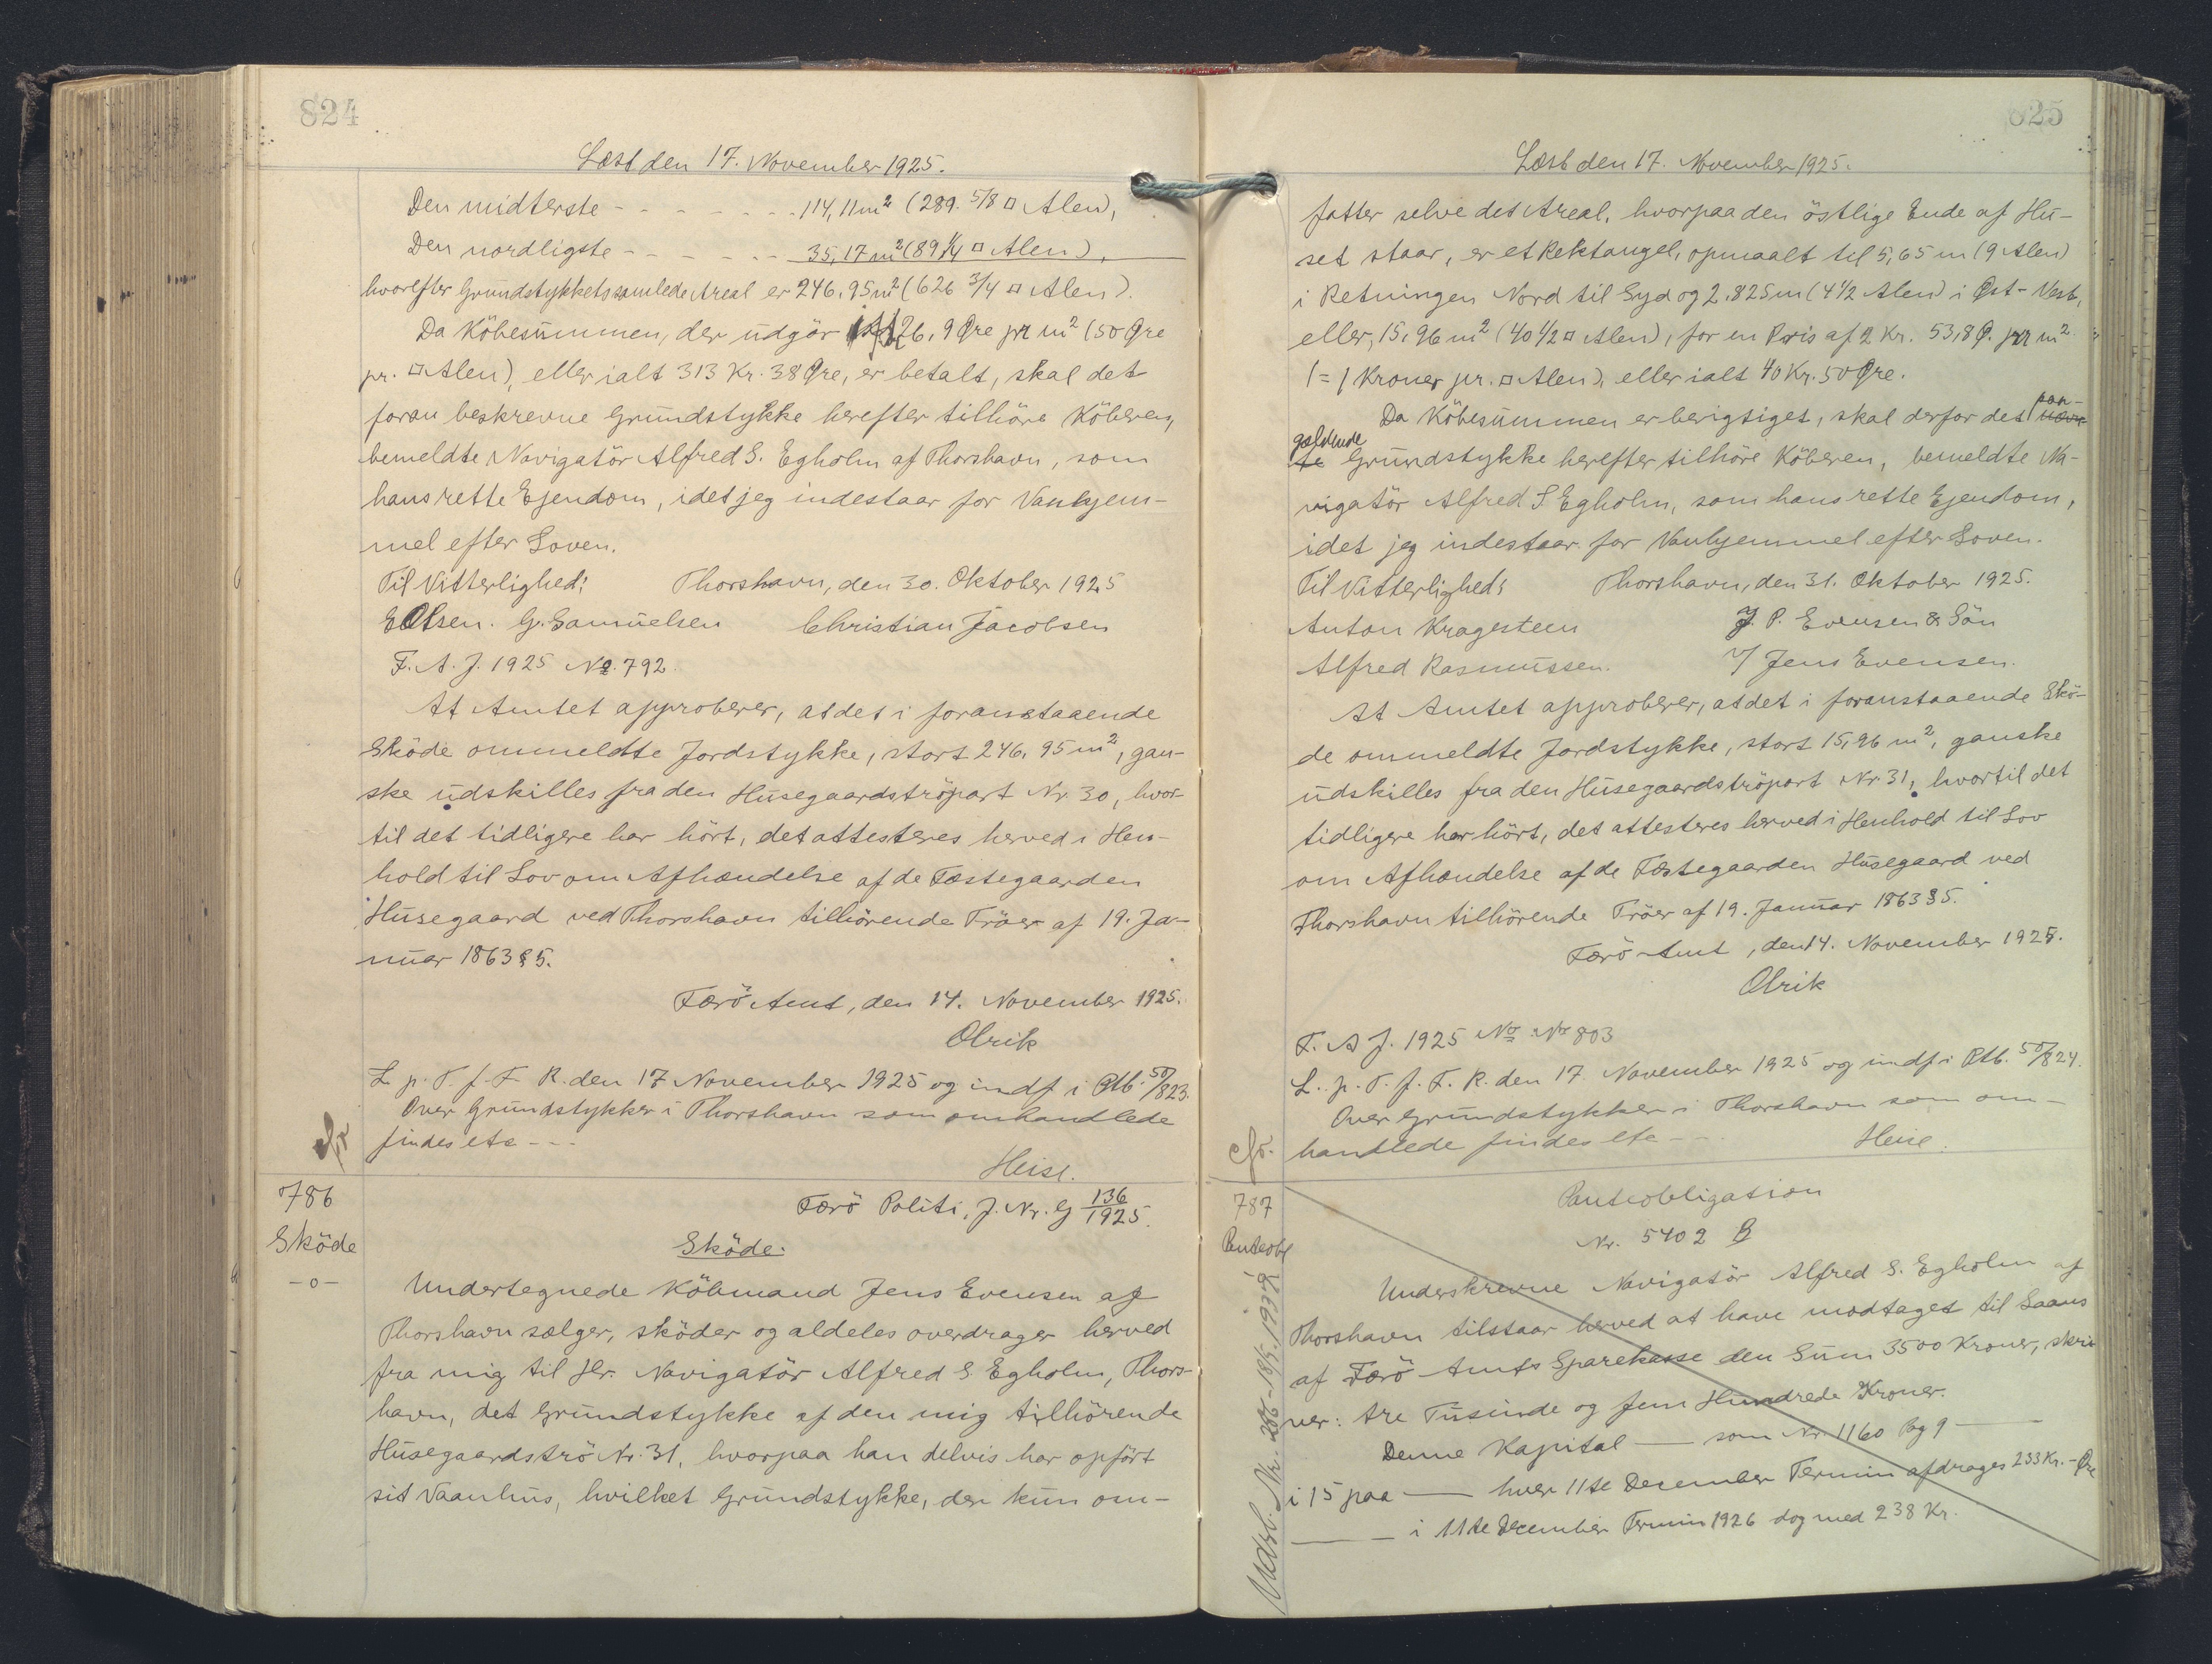 824
Læst den 17. November 1925.
Den midterste - - - - - - - 114,11 m² (289. 5/8 □ Alen),
Den nordligste - - - - - - 35,17 m² (89 1/4 □ Alen),
hvorefter Grundstykkets samlede Areal er 246,95 m² (626 3/4 □ Alen).
Da Köbesummen, der udgör 126,9 Øre pr m² (50 Øre
pr. □ Alen), eller ialt 313 Kr. 38 Øre, er betalt, skal det
foran beskrevne Grundstykke herefter tilhöre Köberen,
bemeldte Navigatör Alfred S. Egholm af Thorshavn, som
hans rette Ejendom, idet jeg indestaar for Vanhjem-
mel efter Loven.
Til Vitterlighed: Thorshavn, den 30. Oktober 1925
E Olsen. G. Samuelsen Christian Jacobsen
F. A. J. 1925 No. 792.
At Amtet approberer, at det i foranstaaende
Sköde ommeldte Jordstykke, stort 246,95 m², gan-
ske udskilles fra den Husegaardströpart Nr. 30, hvor-
til det tidligere har hört, det attesteres herved i Hen-
hold til Lov om Afhændelse af de Fæstegaarden
Husegaard ved Thorshavn tilhörende Tröer af 19. Ja-
nuar 1863 § 5.
Færö Amt, den 14. November 1925.
Olrik
L. p. T. f. F. R. den 17 November 1925 og indf i Ptb. 50/823.
Over Grundstykker i Thorshavn som omhandlede
findes etc - - -
cfr
Heise.
786
Sköde
-o-
Færö Politi, J. Nr. G 136/1925.
Sköde.
Undertegnede Köbmand Jens Evensen af
Thorshavn sælger, sköder og aldeles overdrager herved
fra mig til Hr. Navigatör Alfred S Egholm, Thors-
havn, det Grundstykke af den mig tilhörende
Husegaardströ Nr. 31, hvorpaa han delvis har opfört
sit Vaanhus, hvilket Grundstykke, der kun om-
825
Læst den 17. November 1925.
fatter selve det Areal, hvorpaa den östlige Ende af Hu-
set staar, er et Rektangel, opmaalt til 5,65 m (9 Alen)
i Retningen Nord til Syd og 2,825 m (4 1/2 Alen) i Øst-Vest,
eller, 15,96 m² (40 1/2 □ Alen), for en Pris af 2 Kr. 53,8 Ø. pr m²
(= 1 Kroner pr. □ Alen), eller ialt 40 Kr. 50 Øre.
Da Köbesummen er berigtiget, skal derfor det paa-
gældende Grundstykke herefter tilhöre Köberen, bemeldte Na-
vigatör Alfred S Egholm, som hans rette Ejendom,
idet jeg indestaar for Vanhjemmel efter Loven.
Til Vitterlighed: Thorshavn, den 31. Oktober 1925.
Anton Kragesteen J. P. Evensen & Sön
Alfred Rasmussen. v/ Jens Evensen.
At Amtet approberer, at det i foranstaaende Skö-
de ommeldte Jordstykke, stort 15,96 m², ganske
udskilles fra den Husegaardströpart Nr 31, hvortil det
tidligere har hört, det attesteres herved i Henhold til Lov
om Afhændelse af de Fæstegaarden Husegaard ved
Thorshavn tilhörende Tröer af 19. Januar 1863 § 5.
Færö Amt, den 14. November 1925.
Olrik
F. A J. 1925 No Nr 803
L. p. T. f. F. R. den 17. November 1925 og indf i Ptb. 50/824.
Over Grundstykker i Thorshavn som om-
handlede findes etc - - -
cfr.
Heise.
787
Panteobl
Panteobligation
Nr. 5402 B
Underskrevne Navigatör Alfred S. Egholm af
Thorshavn tilstaar herved at have modtaget til Laans
af Færö Amts Sparekasse den Sum 3500 Kroner, skri
ver: tre Tusinde og fem Hundrede Kroner.
Denne Kapital — som Nr. 1160 Pag 9 —
i 15 paa — hver 11te December Termin afdrages 233 Kr. - Øre
— i 11te December Termin 1926 dog med 238 Kr.